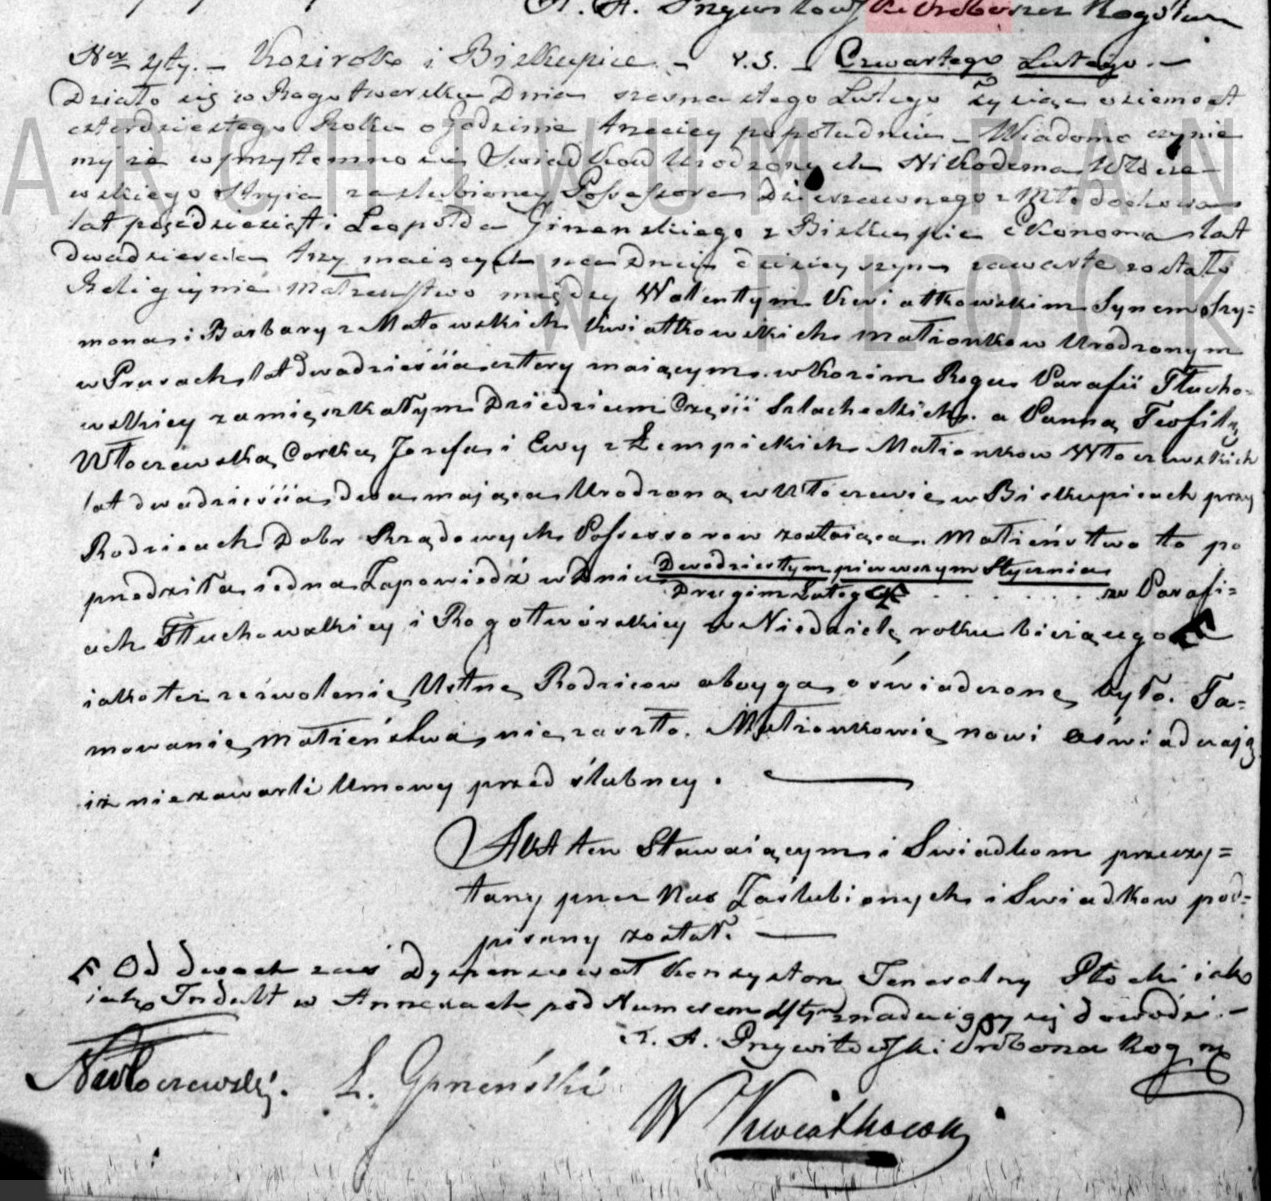 X. A. Przywitowski Proboszcz Rogotw
Ner 4ty. – Kozirok i Biskupice. – r. s. – Czwartego Lutego. –
Działo się w Rogotworsku Dnia szesnastego Lutego Tysiąc osiemset
czterdziestego Roku o godzinie trzeciey popołudniu – Wiadomo czynie
my że w przytomności Swiadków Urodzonych Nikodema Włocze
wskiego Stryia zaslubioney Possessora Dzierzawnego z Młodochowa
lat pięcdziesiąt i Leopolda Gnenskiego z Biskupic Ekonoma lat
dwadziescia trzy maiących na Dniu dzisieyszym zawarte zostało
Religiynie Małzenstwo między Walentym Kwiatkowskim Synem Szy=
mona i Barbary z Małowskich Kwiatkowskich małzonkow Urodzonym
w Prusach lat dwadzieścia cztery maiącym w Kozim Rogu Parafii Tłucho
wskiey zamięszkałym Dziedzicem Częsci Szlacheckich. a Panną Teofilą
Włoczewską Corką Jozefa i Ewy z Łempickich Małzonkow Włoczewskich
lat dwadzieścia dwa maiąca Urodzoną w Włoczewie w Biskupicach przy
Rodzicach Dobr Rządowych Possessorow zostaiąca. Małzeństwo to po
przedziła iedna Zapowiedź w Dniu Dwodziestym pierwszym Stycznia
Drugim Lutego . . . . . . . w Parafi=
ach Tłuchowskiey i Rogotwórskiey w Niedzielę roku bieżącego
iakoteż zezwolenie Ustne Rodzicow oboyga oświadczone było. Ta=
mowanie małzeństwa nie zaszło. Małzonkowie nowi oświadczaią
iż niezawarli Umowy przed ślubney.
Akt ten Stawaiącym i Swiadkom przeczy=
tany przez Nas Zaślubionych i Swiadkow pod=
pisany został. –
Od dwoch zaś dyspensował Konsystorz Jeneralny Płocki iak
iako Indult w Annexach pod Numerem 4tym znaduiący się dowodzi. –
X. A. Przywitowski Proboszcz Rog
NWłoczewski. L. Gnieński
W Kwiatkowski
ARCHIWUM PAN
W PŁOCK